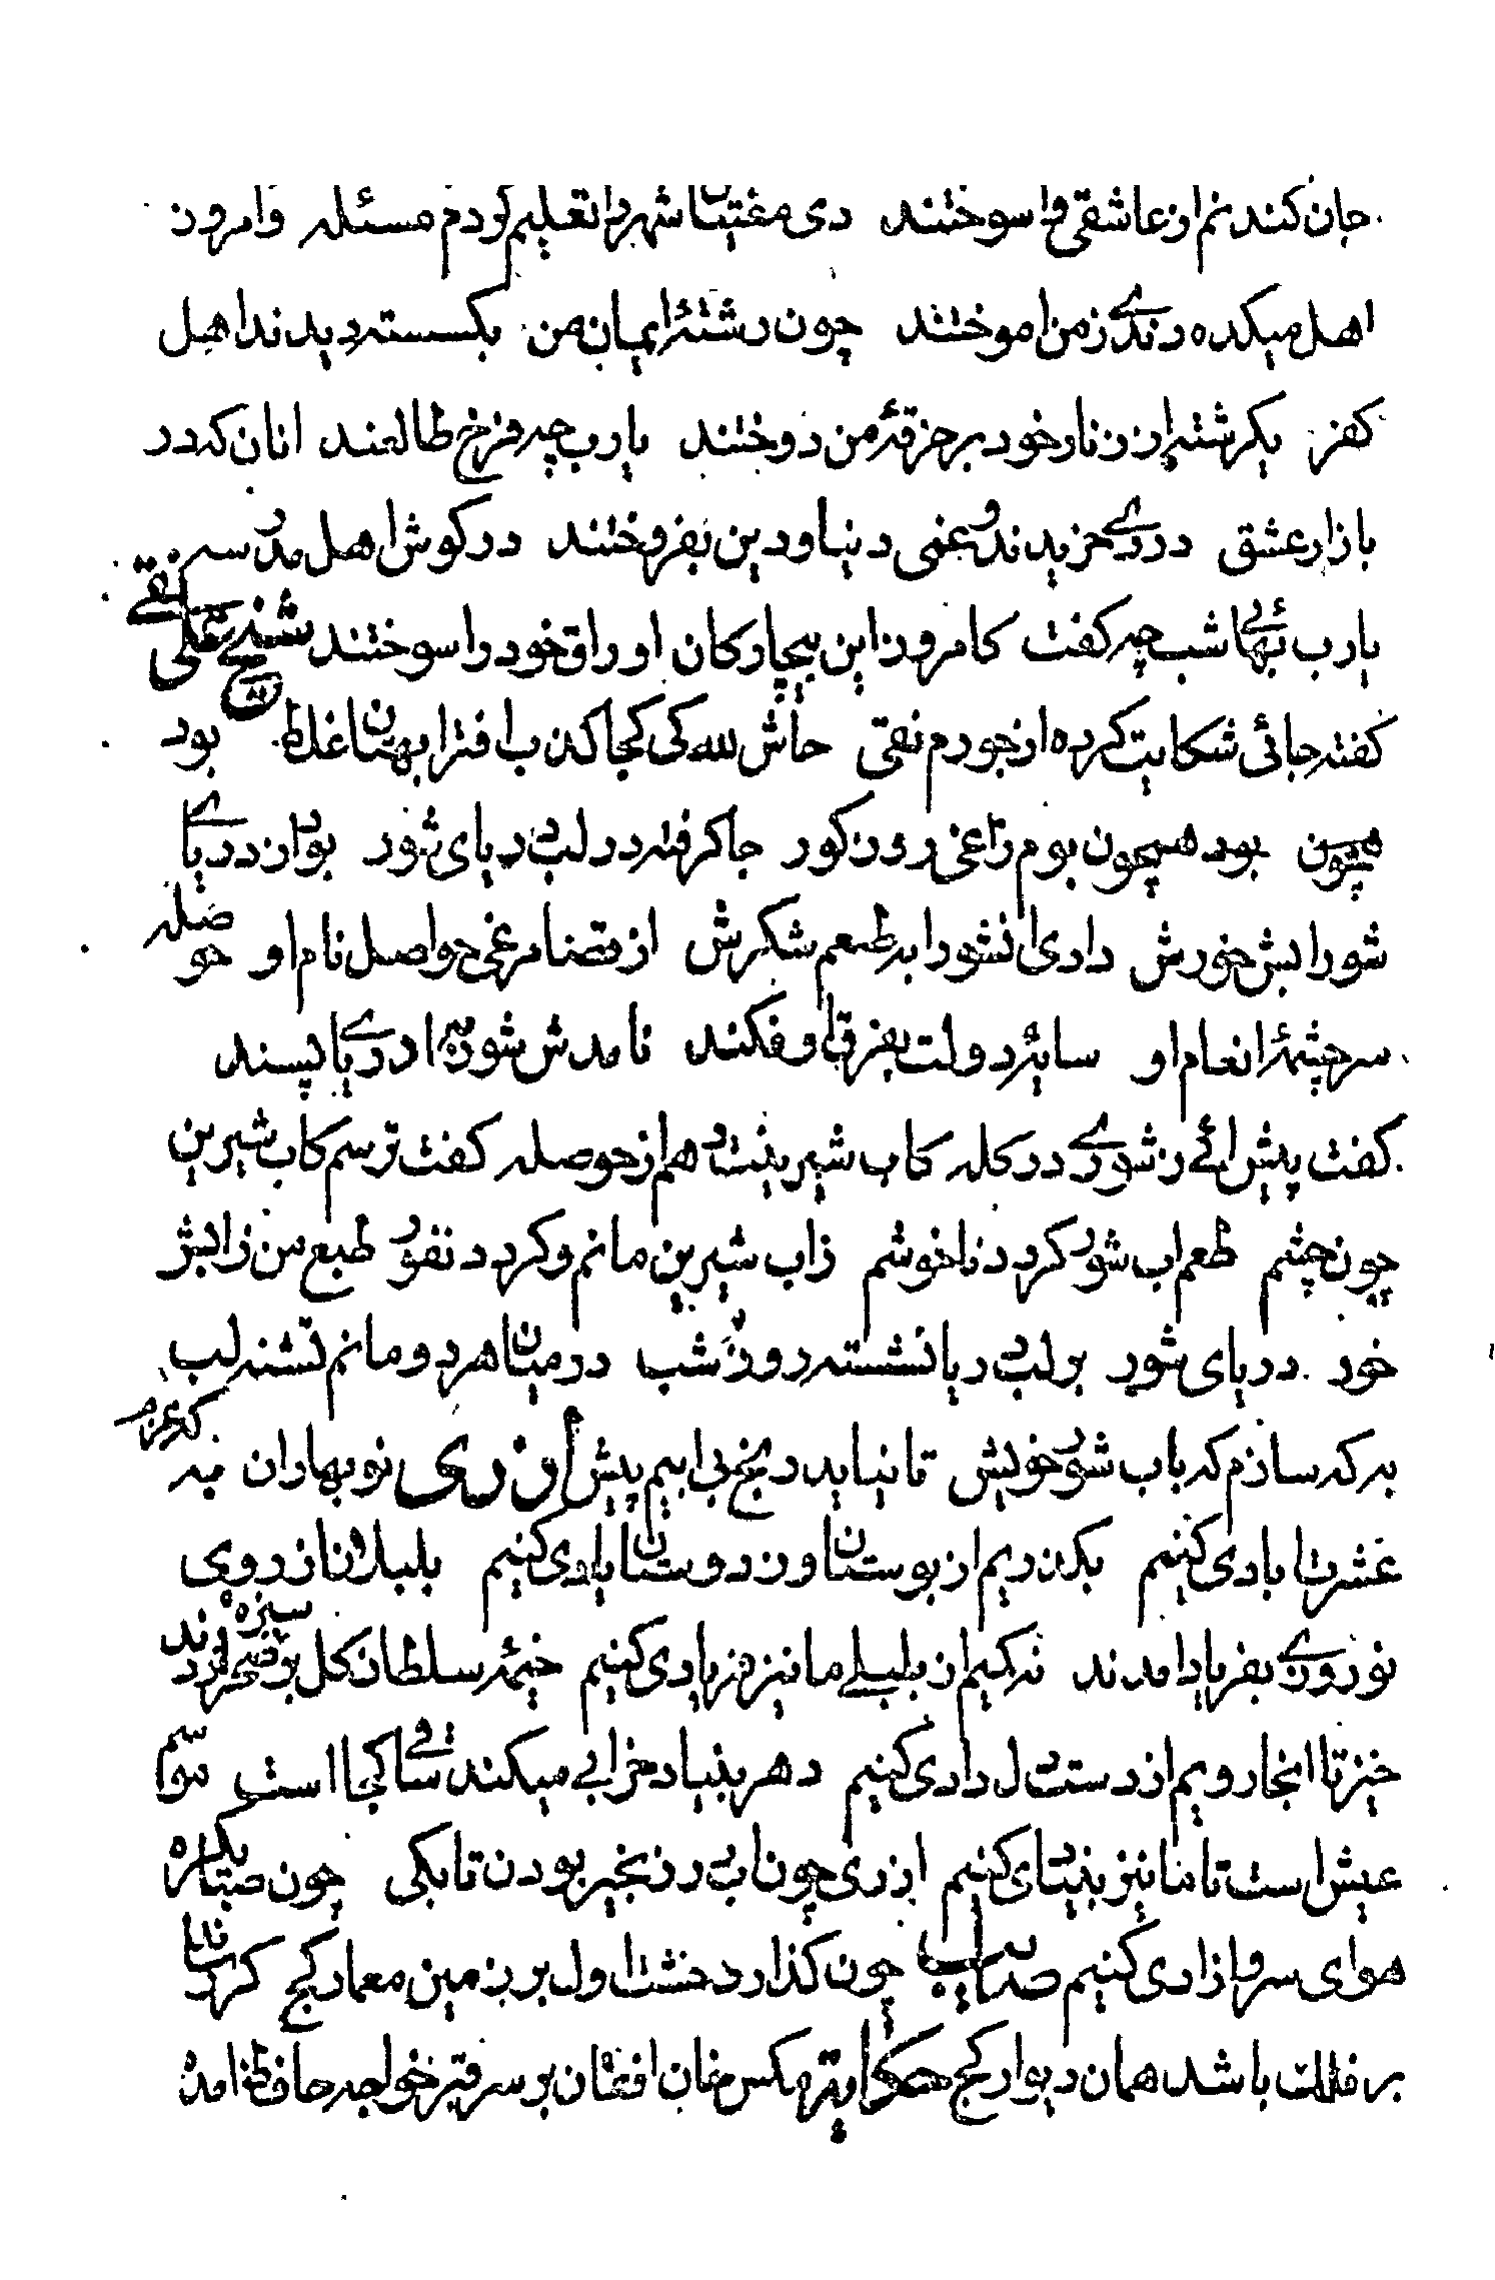 جان کندنم از عاشقی وا سوختند دی مفتیان شهر را تعلیم کردم مسئله و امروز
اهل میکده رندی ز من اموختند چون رشتهٔ ایمان من بکسسته دیدند اهل
کفر یکرشته از زنار خود بر خرقهٔ من دوختند یا رب چه فرخ طالعند انان که در
بازار عشق دردی خریدند و غمی دنیا و دین بفروختند در کوش اهل مدرسه
یا رب بهائی شب چه کفت کامروز این بیچارکان اوراق خود را سوختند شیخ علی نقی
کفته جائی شکایت کرده از جورم نقی حاش لله کی کجا کذب افترا بهتان غلط بود
همچون بود همچون بوم زاغی روز کور جا کرفته در لب دریای شور بود از دریای
شورابش خورش دادی ان شورابه طعم شکرش از قضا مرغی حواصل نام او حوضله
سرچشمهٔ انعام او سایهٔ دولت بفرق او فکند نامدش شورابهٔ دریا پسند
کفت پیش ای ز شوری در کله کاب شیرینت دهم از حوصله کفت ترسم کاب شیرین
چون چشم طعم اب شور کردد ناخوشم زاب شیرین مانم و کردد نفور طبع من ز ابشخور
خود دریای شور بر لب دریا نشسته روز و شب در میان هر دو مانم تشنه لب
به که سازم که باب شور خویش تا نیاید رنج بی ابیم پیش اذری نوبهاران میه که عزم
عشرت ابادی کنیم بکذریم از بوستان وز دوستان یادی کنیم بلبلان از روی
نوروزی بفریاد امدند نه کیم از بلبلے ما نیز فریادی کنیم خیمهٔ سلطان کل بر فرش سبزه زدند
خیز تا انجا رویم از دست دل دادی کنیم دهر بنیاد خرابی میکند ساقی کجا است موسم
عیش است تا ما نیز بنیادی کنیم اذری چون اب در زنجیر بودن تا بکی چون صبا یکباره
هوای سرو ازادی کنیم صائب چون کذارد خشت اول بر زمین معمار کج کر رساند
بر فلک باشد همان دیوار کج حکایت مکس خان افغان بر سر قبر خواجه حافظ امده